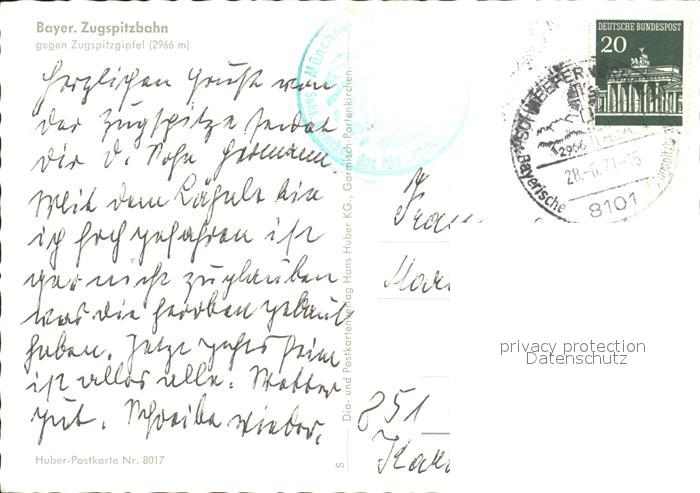 Bayer. Zugspitzbahn
gegen Zugspitzgipfel (2966 m)
Herzlichen Gruß von
der Zugspitze sendet
dir d. Sohn Hermann.
Mit dem Zügele bin
ich hochgefahren ist
gar nicht zu glauben
was die heroben gebaut
haben. Jetzt gehts heim
ist alles alle. Wetter
gut. Schreibe wieder.
Huber-Postkarte Nr. 8017
S Dia- und Postkartenverlag Hans Huber KG., Garmisch-Partenkirchen
München
DEUTSCHE BUNDESPOST
20
2966
Bayerische
28.-6.71.-15
8101
851
privacy protection
Datenschutz